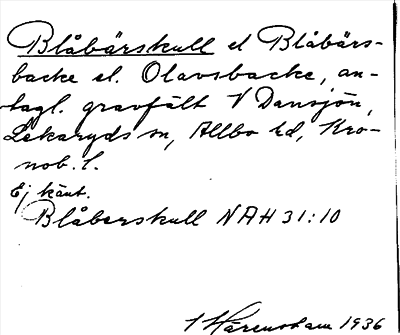 Blåbärskull el Blåbärs-
backe el. Olavsbacke, an-
tagl. gravfält V Dansjön,
Lekaryds sn, Allbo hd, Kro-
nob. l.
Ej känt.
Blåberskull NAH 31:10
Härensham 1936